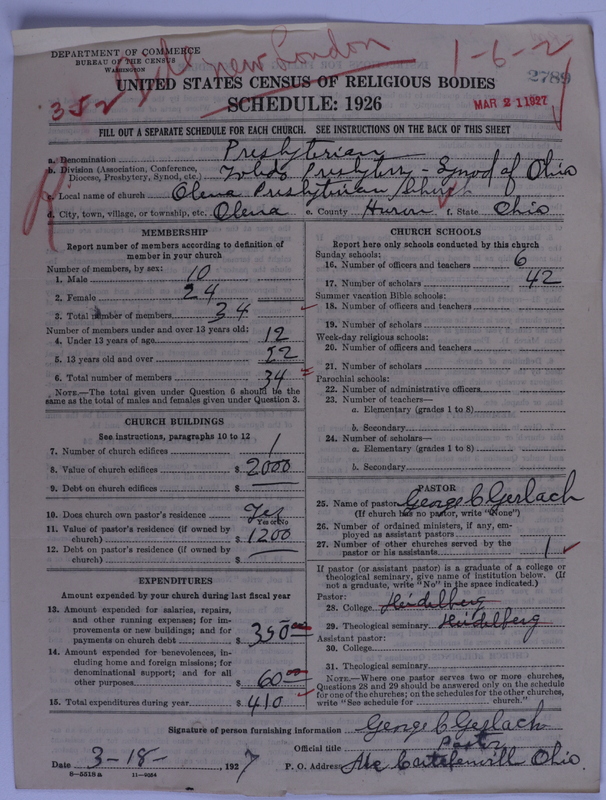 DEPARTMENT OF COMMERCE
BUREAU OF THE CENSUS
WASHINGTON
Del New London
1-6-2
2789
352
UNITED STATES CENSUS OF RELIGIOUS BODIES
SCHEDULE: 1926
MAR 21 1927
FILL OUT A SEPARATE SCHEDULE FOR EACH CHURCH. SEE INSTRUCTIONS ON THE BACK OF THIS SHEET
a. Denomination Presbyterian
b. Division (Association, Conference, Diocese, Presbytery, Synod, etc.) Toledo Presbytery - Synod of Ohio
c. Local name of church Olena Presbyterian Church
d. City, town, village, or township, etc. Olena e. County Huron f. State Ohio
MEMBERSHIP
Report number of members according to definition of
member in your church
Number of members, by sex:
1. Male 10
2. Female 24
3. Total number of members 34
Number of members under and over 13 years old:
4. Under 13 years of age 12
5. 13 years old and over 22
6. Total number of members 34
NOTE.—The total given under Question 6 should be
same as the total of males and females given under Question 3.
CHURCH BUILDINGS
See instructions, paragraphs 10 to 12
7. Number of church edifices 1
8. Value of church edifices $ 2000
9. Debt on church edifices $ —
10. Does church own pastor's residence Yes
Yes or No
11. Value of pastor's residence (if owned by
church) $ 1200
12. Debt on pastor's residence (if owned by
church) $ —
EXPENDITURES
Amount expended by your church during last fiscal year
13. Amount expended for salaries, repairs,
and other running expenses; for im-
provements or new buildings; and for
payments on church debt $ 350.00
14. Amount expended for benevolences, in-
cluding home and foreign missions; for
denominational support; and for all
other purposes $ 60.00
15. Total expenditures during year $ 410
CHURCH SCHOOLS
Report here only schools conducted by this church
Sunday schools:
16. Number of officers and teachers 6
17. Number of scholars 42
Summer vacation Bible schools:
18. Number of officers and teachers
19. Number of scholars
Week-day religious schools:
20. Number of officers and teachers
21. Number of scholars
Parochial schools:
22. Number of administrative officers
23. Number of teachers—
a. Elementary (grades 1 to 8)
b. Secondary
24. Number of scholars—
a. Elementary (grades 1 to 8)
b. Secondary
PASTOR
25. Name of pastor George C Gerlach
(If church has no pastor, write "None")
26. Number of ordained ministers, if any, em-
ployed as assistant pastors
27. Number of other churches served by the
pastor or his assistants 1
If pastor (or assistant pastor) is a graduate of a college or
theological seminary, give name of institution below. (If
not a graduate, write "No" in the space indicated.)
Pastor:
28. College Heidelberg
29. Theological seminary Heidelberg
Assistant pastor:
30. College
31. Theological seminary
NOTE.—Where one pastor serves two or more churches,
Questions 28 and 29 should be answered only on the schedule
for one of the churches; on the schedules for the other churches,
write "See schedule for church."
Signature of person furnishing information George C Gerlach
Official title Pastor
Date 3-18-, 1927 P. O. Address Ohio
8-5518a 11-9054